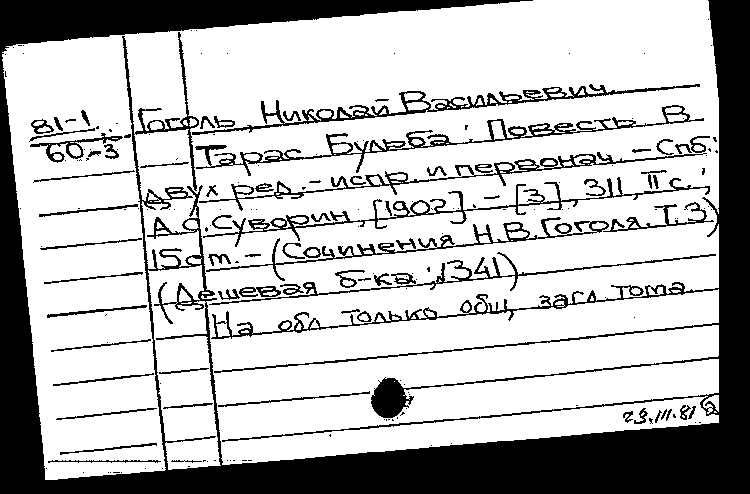 81-1 Гоголь, Николай Васильевич.
60-3 Тарас Бульба: Повесть в
двух ред. - испр. и первонач. - Спб.:
А.С. Суворин, [190?]. - [3], 311, II с.;
15 cm. - (Сочинения Н.В. Гоголя. Т. 3)
(Дешевая б-ка; №341).
На обл. только общ. загл. тома.
23.III.81